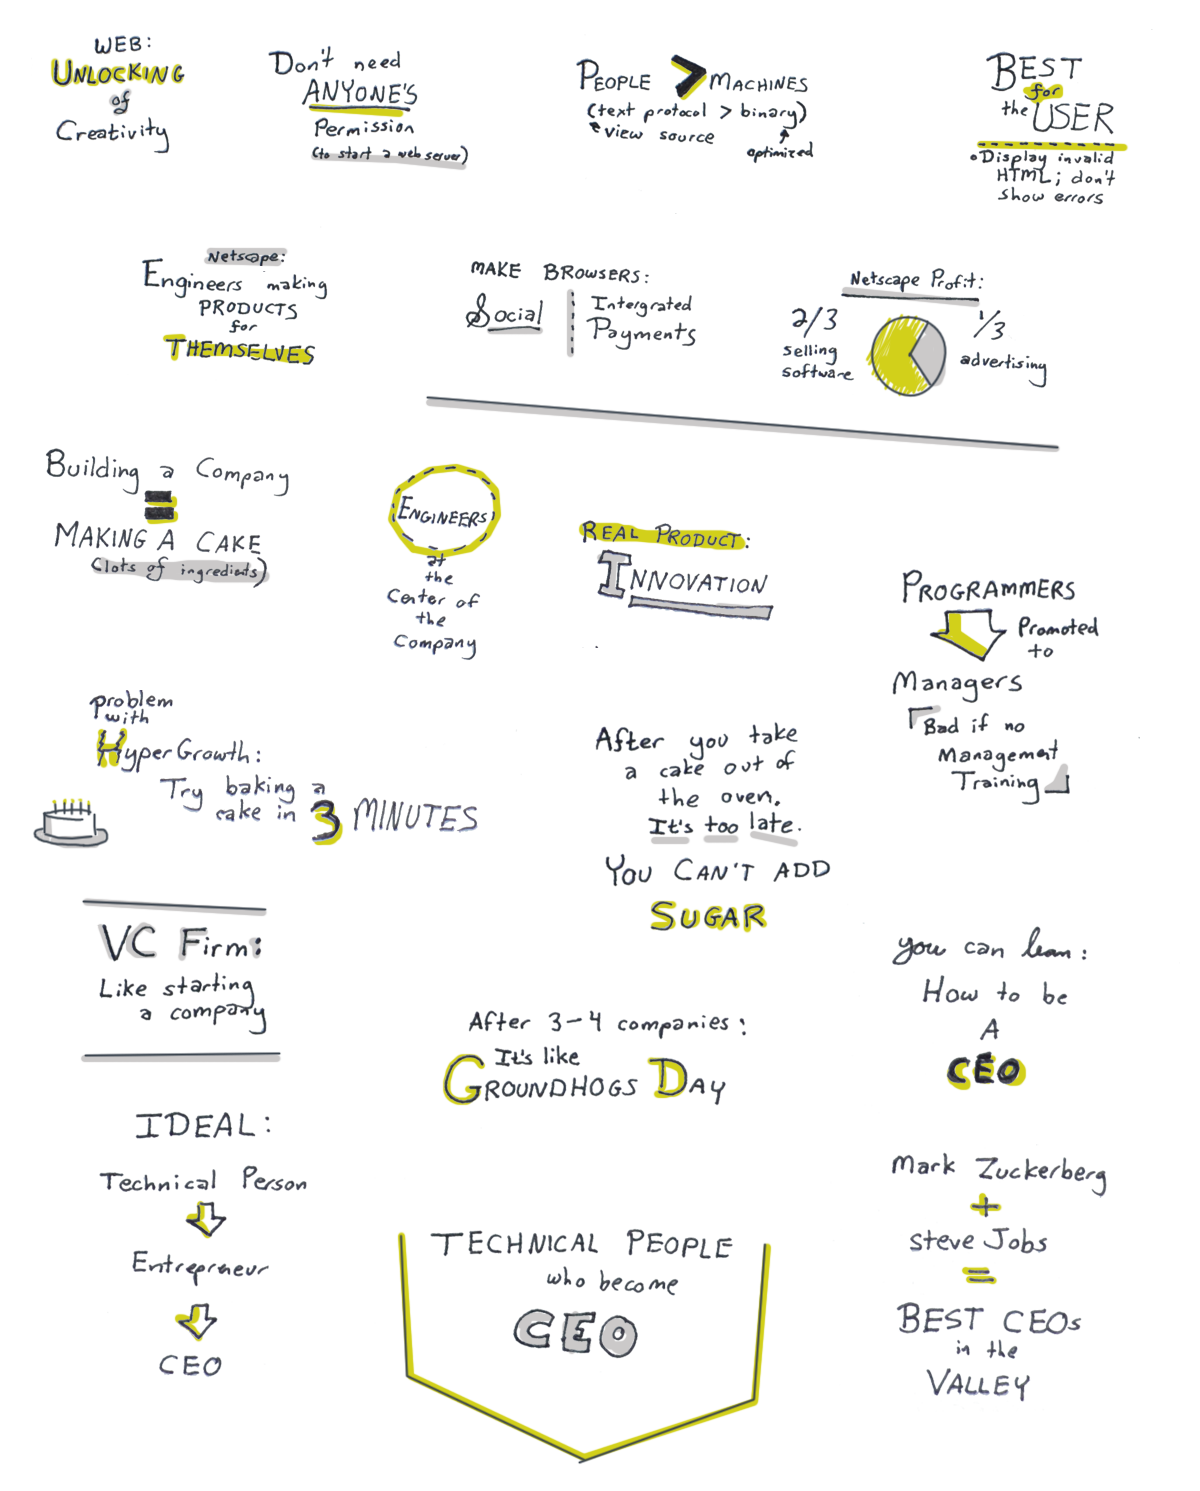 WEB:
UNLOCKING
of
Creativity
Don't need
ANYONE'S
Permission
(to start a web server)
PEOPLE > MACHINES
(text protocol > binary)
view source
optimized
BEST
for
the USER
• Display invalid
HTML; don't
show errors
Netscape:
Engineers making
PRODUCTS
for
THEMSELVES
MAKE BROWSERS:
Social
Intergrated
Payments
Netscape Profit:
2/3
selling
software
1/3
advertising
Building a Company
=
MAKING A CAKE
(lots of ingredients)
ENGINEERS
at
the
Center of
the
Company
REAL PRODUCT:
INNOVATION
PROGRAMMERS
Promoted
to
Managers
Bad if no
Management
Training
problem
with
HyperGrowth:
Try baking a
cake in 3 MINUTES
After you take
a cake out of
the oven.
It's too late.
YOU CAN'T ADD
SUGAR
VC Firm:
Like starting
a company
After 3-4 companies:
It's like
GROUNDHOGS DAY
you can learn:
How to be
A
CEO
IDEAL:
Technical Person
Entrepreneur
CEO
TECHNICAL PEOPLE
who become
CEO
Mark Zuckerberg
+
Steve Jobs
=
BEST CEOs
in the
VALLEY